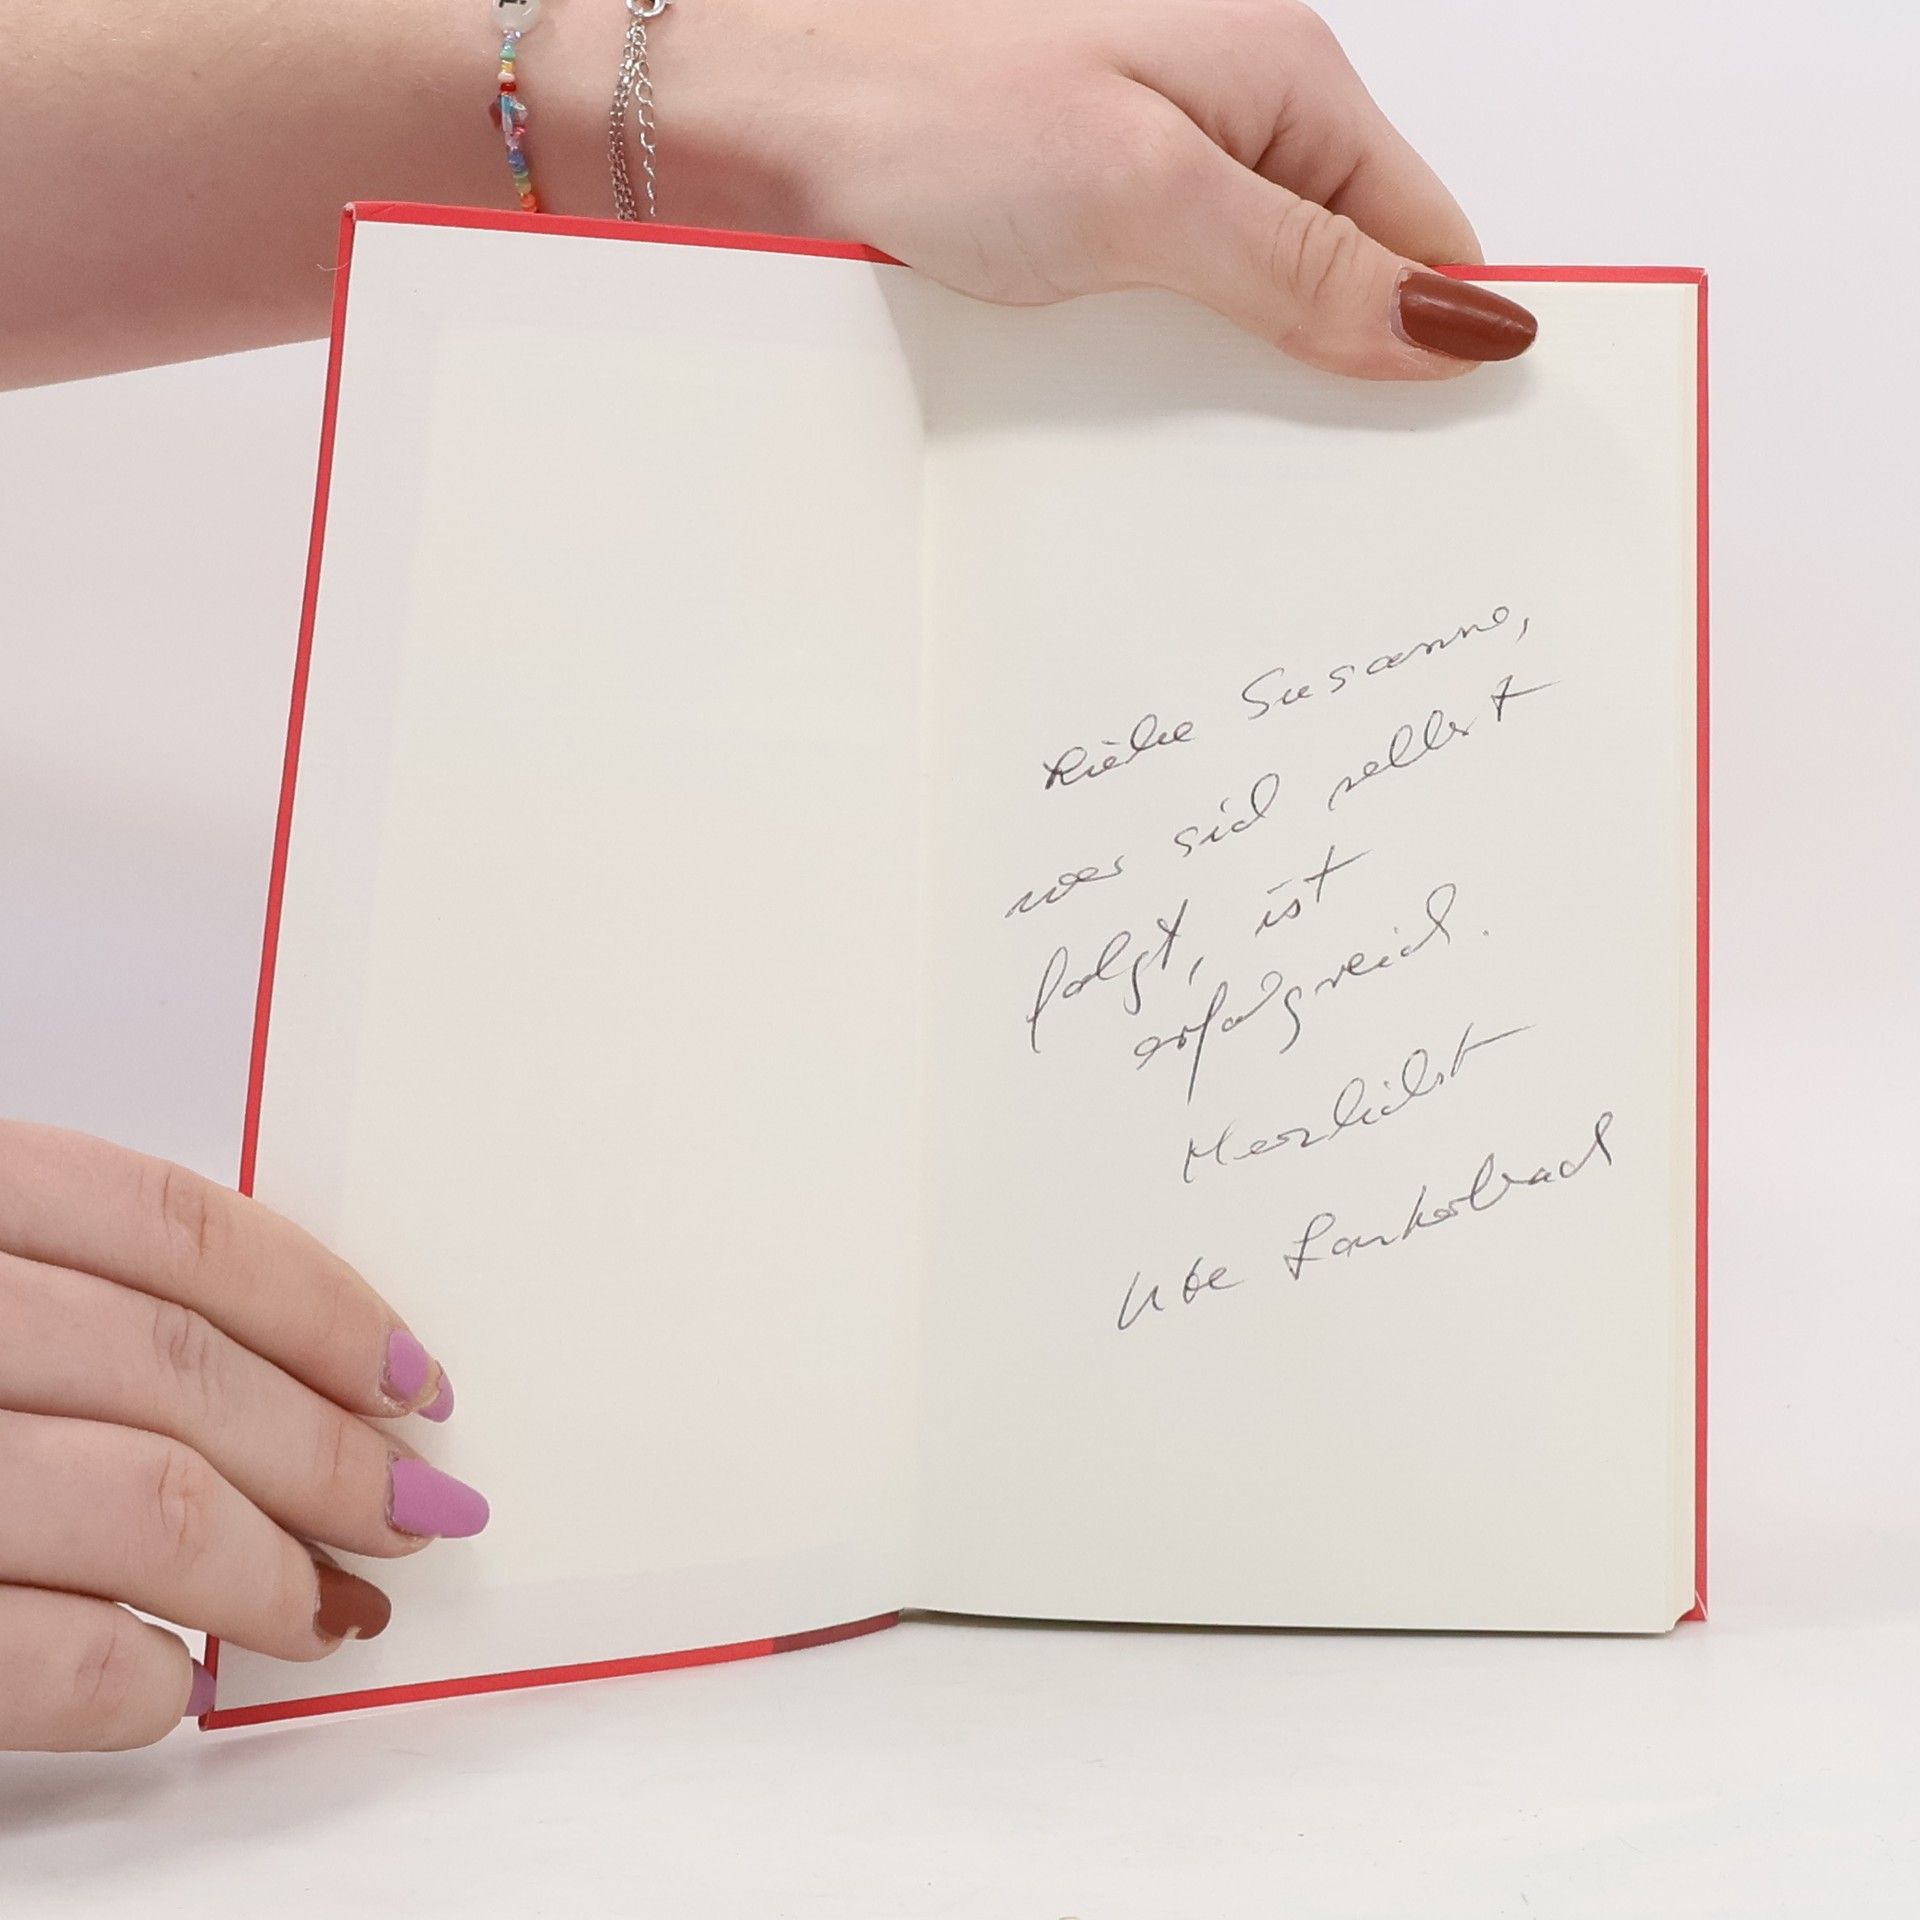 Liebe Susanne,
wer sich selbst
folgt, ist
erfolgreich.
Herzlichst
Ute Lauterbach